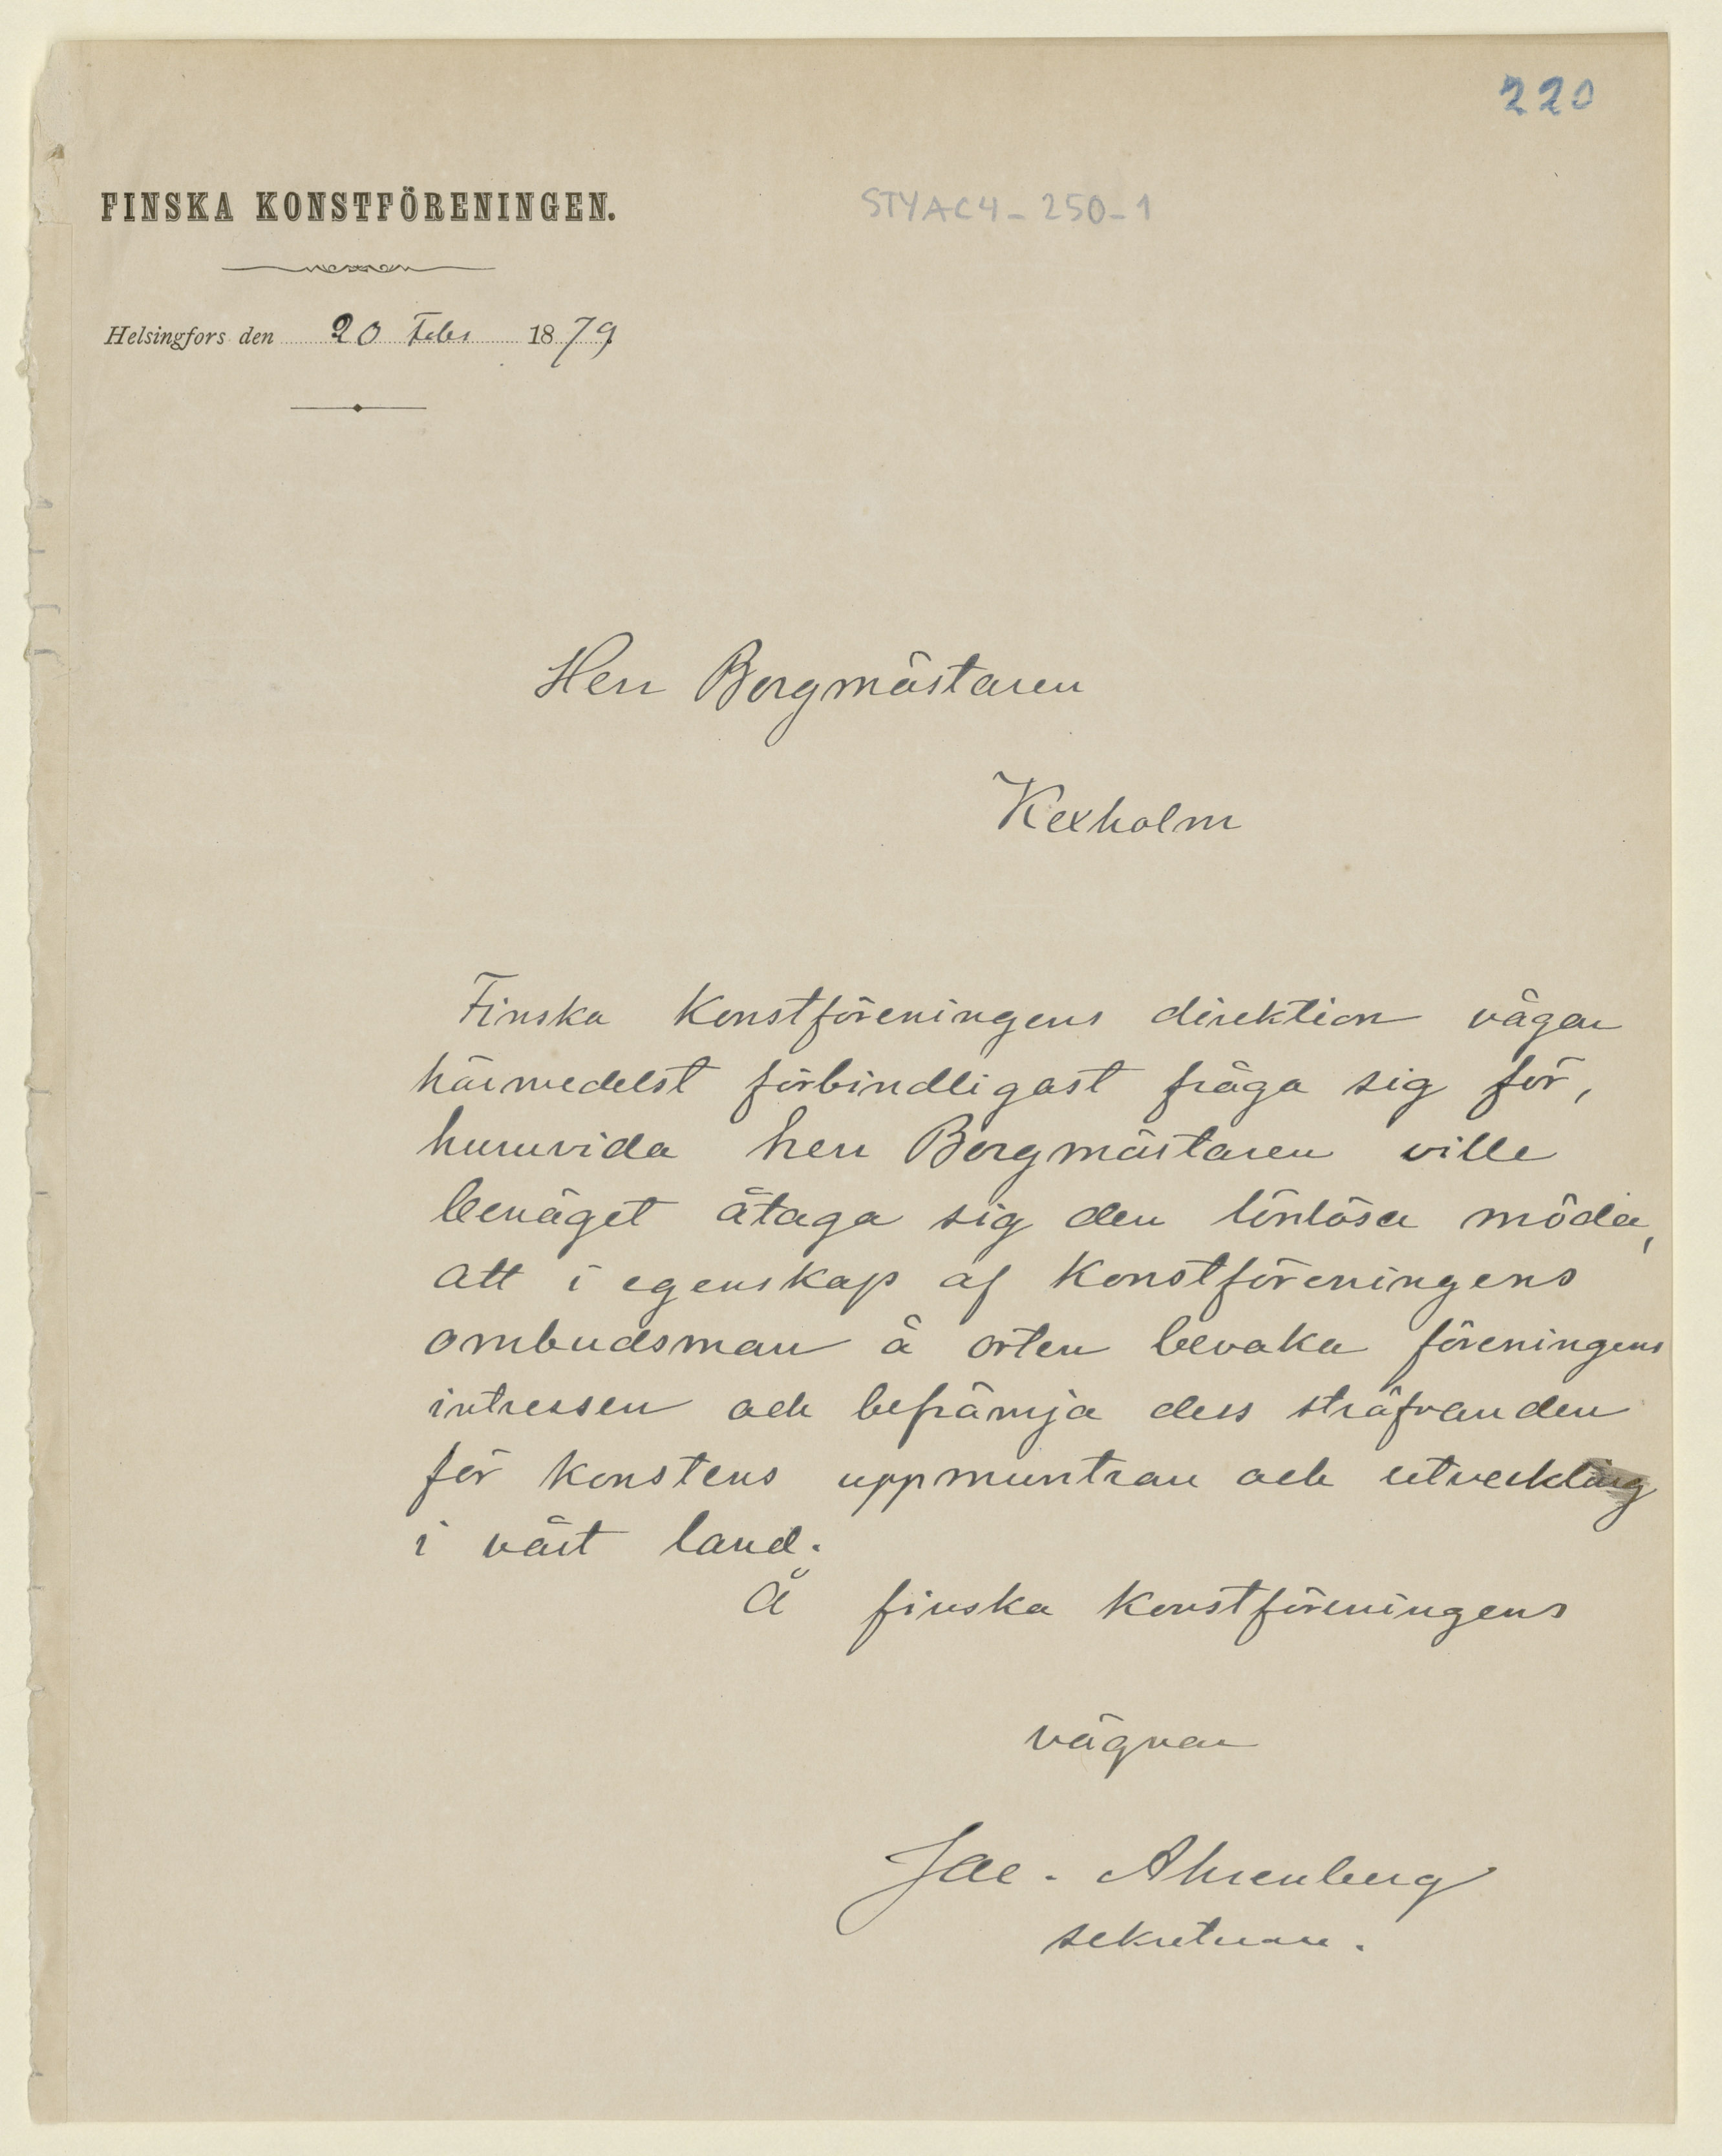 220
FINSKA KONSTFÖRENINGEN.
STYAC4-250-1
Helsingfors den 20 Febr 1879
Herr Borgmästaren
Kexholm
Finska Konstföreningens direktion vågar
härmedelst förbindligast fråga sig för,
huruvida herr Borgmästaren ville
benäget åtaga sig den lönlösa möda,
att i egenskap af Konstföreningens
ombudsman å orten bevaka föreningens
intressen och befrämja dess sträfvanden
för konstens uppmuntran och utveckling
i vårt land.
Å finska Konstföreningens
vägnar
Jac. Ahrenberg
sekreterare.